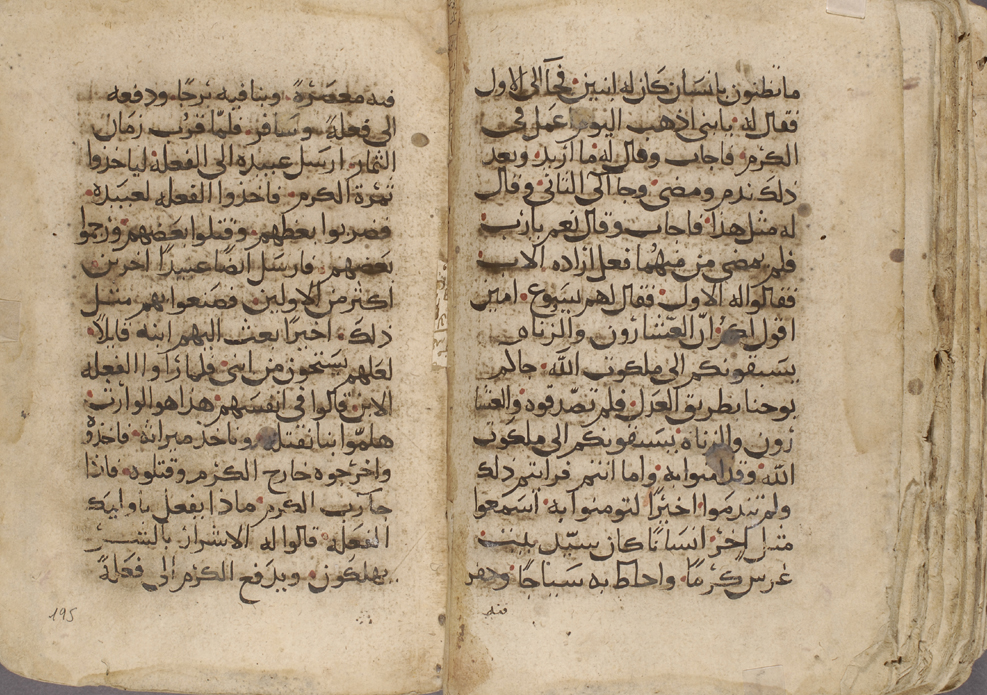 ما تظنون بانسان كان له ابنين فجا الى الاول
فقال له يا بنى اذهب اليوم عمل فى
الكرم فاجاب وقال له ما اريد وبعد
ذلك ندم ومضى وجا الى الثانى وقال
له مثل هذا فاجاب وقال نعم يا رب
فلم يمضى من منهما فعل ارادة الاب
فقالوا له الاول فقال لهم يسوع امين
اقول لكم ان العشارون والزناه
يسبقونكم الى ملكوت الله جاكم
يوحنا بطريق العدل فلم تصدقوه والعشا
رون والزناه يسبقونكم الى ملكوت
الله وقد امنوا به واما انتم فرايتم ذلك
ولم تندموا اخيرًا لتومنوا به اسمعوا
مثل اخر انسانًا كان سيد بيت
غرس كرمًا واحاط به سياجًا وحفر
فيه
فيه معصرة وبنا فيه برجًا ودفعه
الى فعلة وسافر فلما قرب زمان
الثمار ارسل عبيده الى الفعله لياخذوا
ثمرة الكرم فاخذوا الفعله لعبيده
فضربوا بعظهم وقتلوا بعضهم ورجموا
بعضهم فارسل ايضًا عبيدًا اخرين
اكثر من الاولين فصنعوا بهم مثل
ذلك اخيرًا بعث اليهم ابنه قايلا
لعلهم يستحون من ابنى فلما راوا الفعله
الابن قالوا فى انفسهم هذا هو الوارث
هلموا بنا نقتله وناخذ ميراثه فاخذوه
واخرجوه خارج الكرم وقتلوه فاذا
جا رب الكرم ماذا يفعل باوليك
الفعلة قالوا له الاشرار بالشر
يهلكون ويدفع الكرم الى فعلةً
195